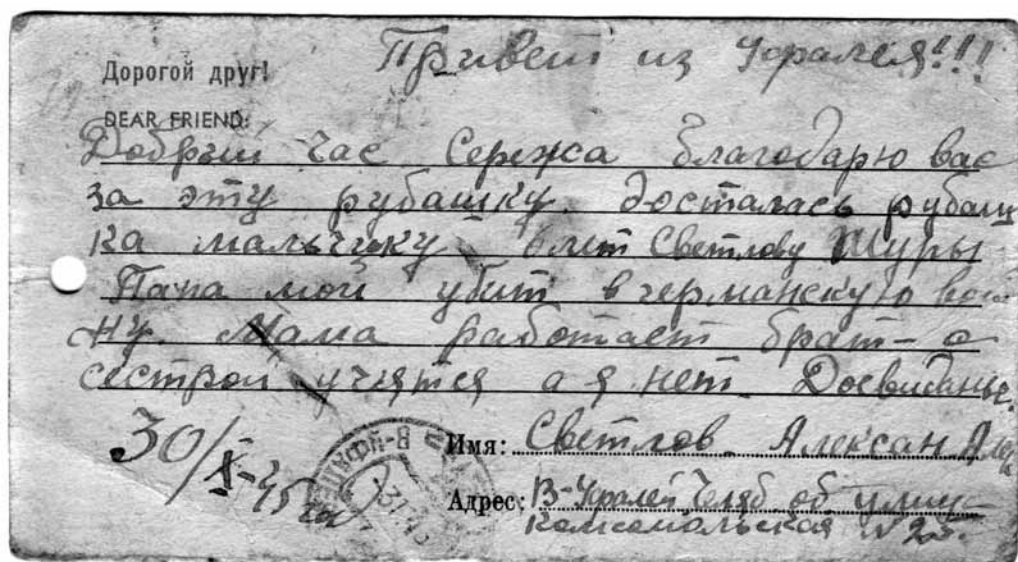 Дорогой друг!
Привет из Уфалея!!!
DEAR FRIEND:
Добрый час Сережа благодарю вас
за эту рубашку. досталась рубаш
ка мальчику 6 лет Светлову Шуры
Папа мой убит в германскую вой
ну. Мама работает брат - с
сестрой учятся а я нет. Досвиданье.
30/X-45 год
Имя: Светлов Алексан Алек
Адрес: В-Уфалей Челяб. об. улиц-
Комсомольская №